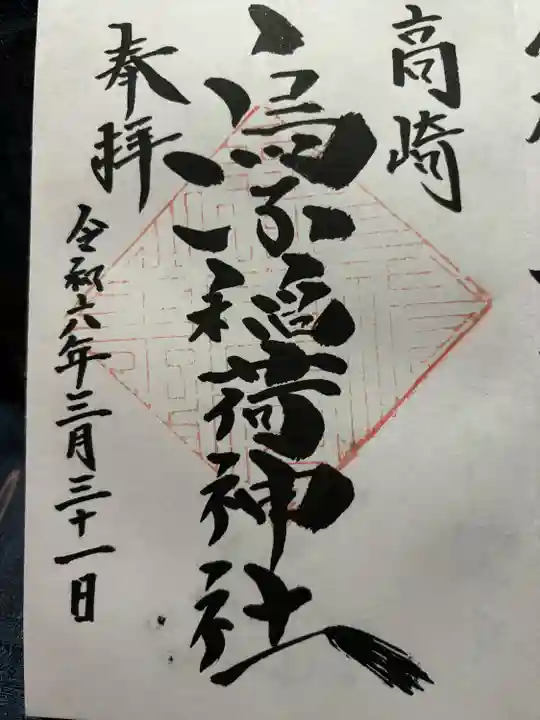 高崎
烏子稲荷神社
奉拝
令和六年三月三十一日